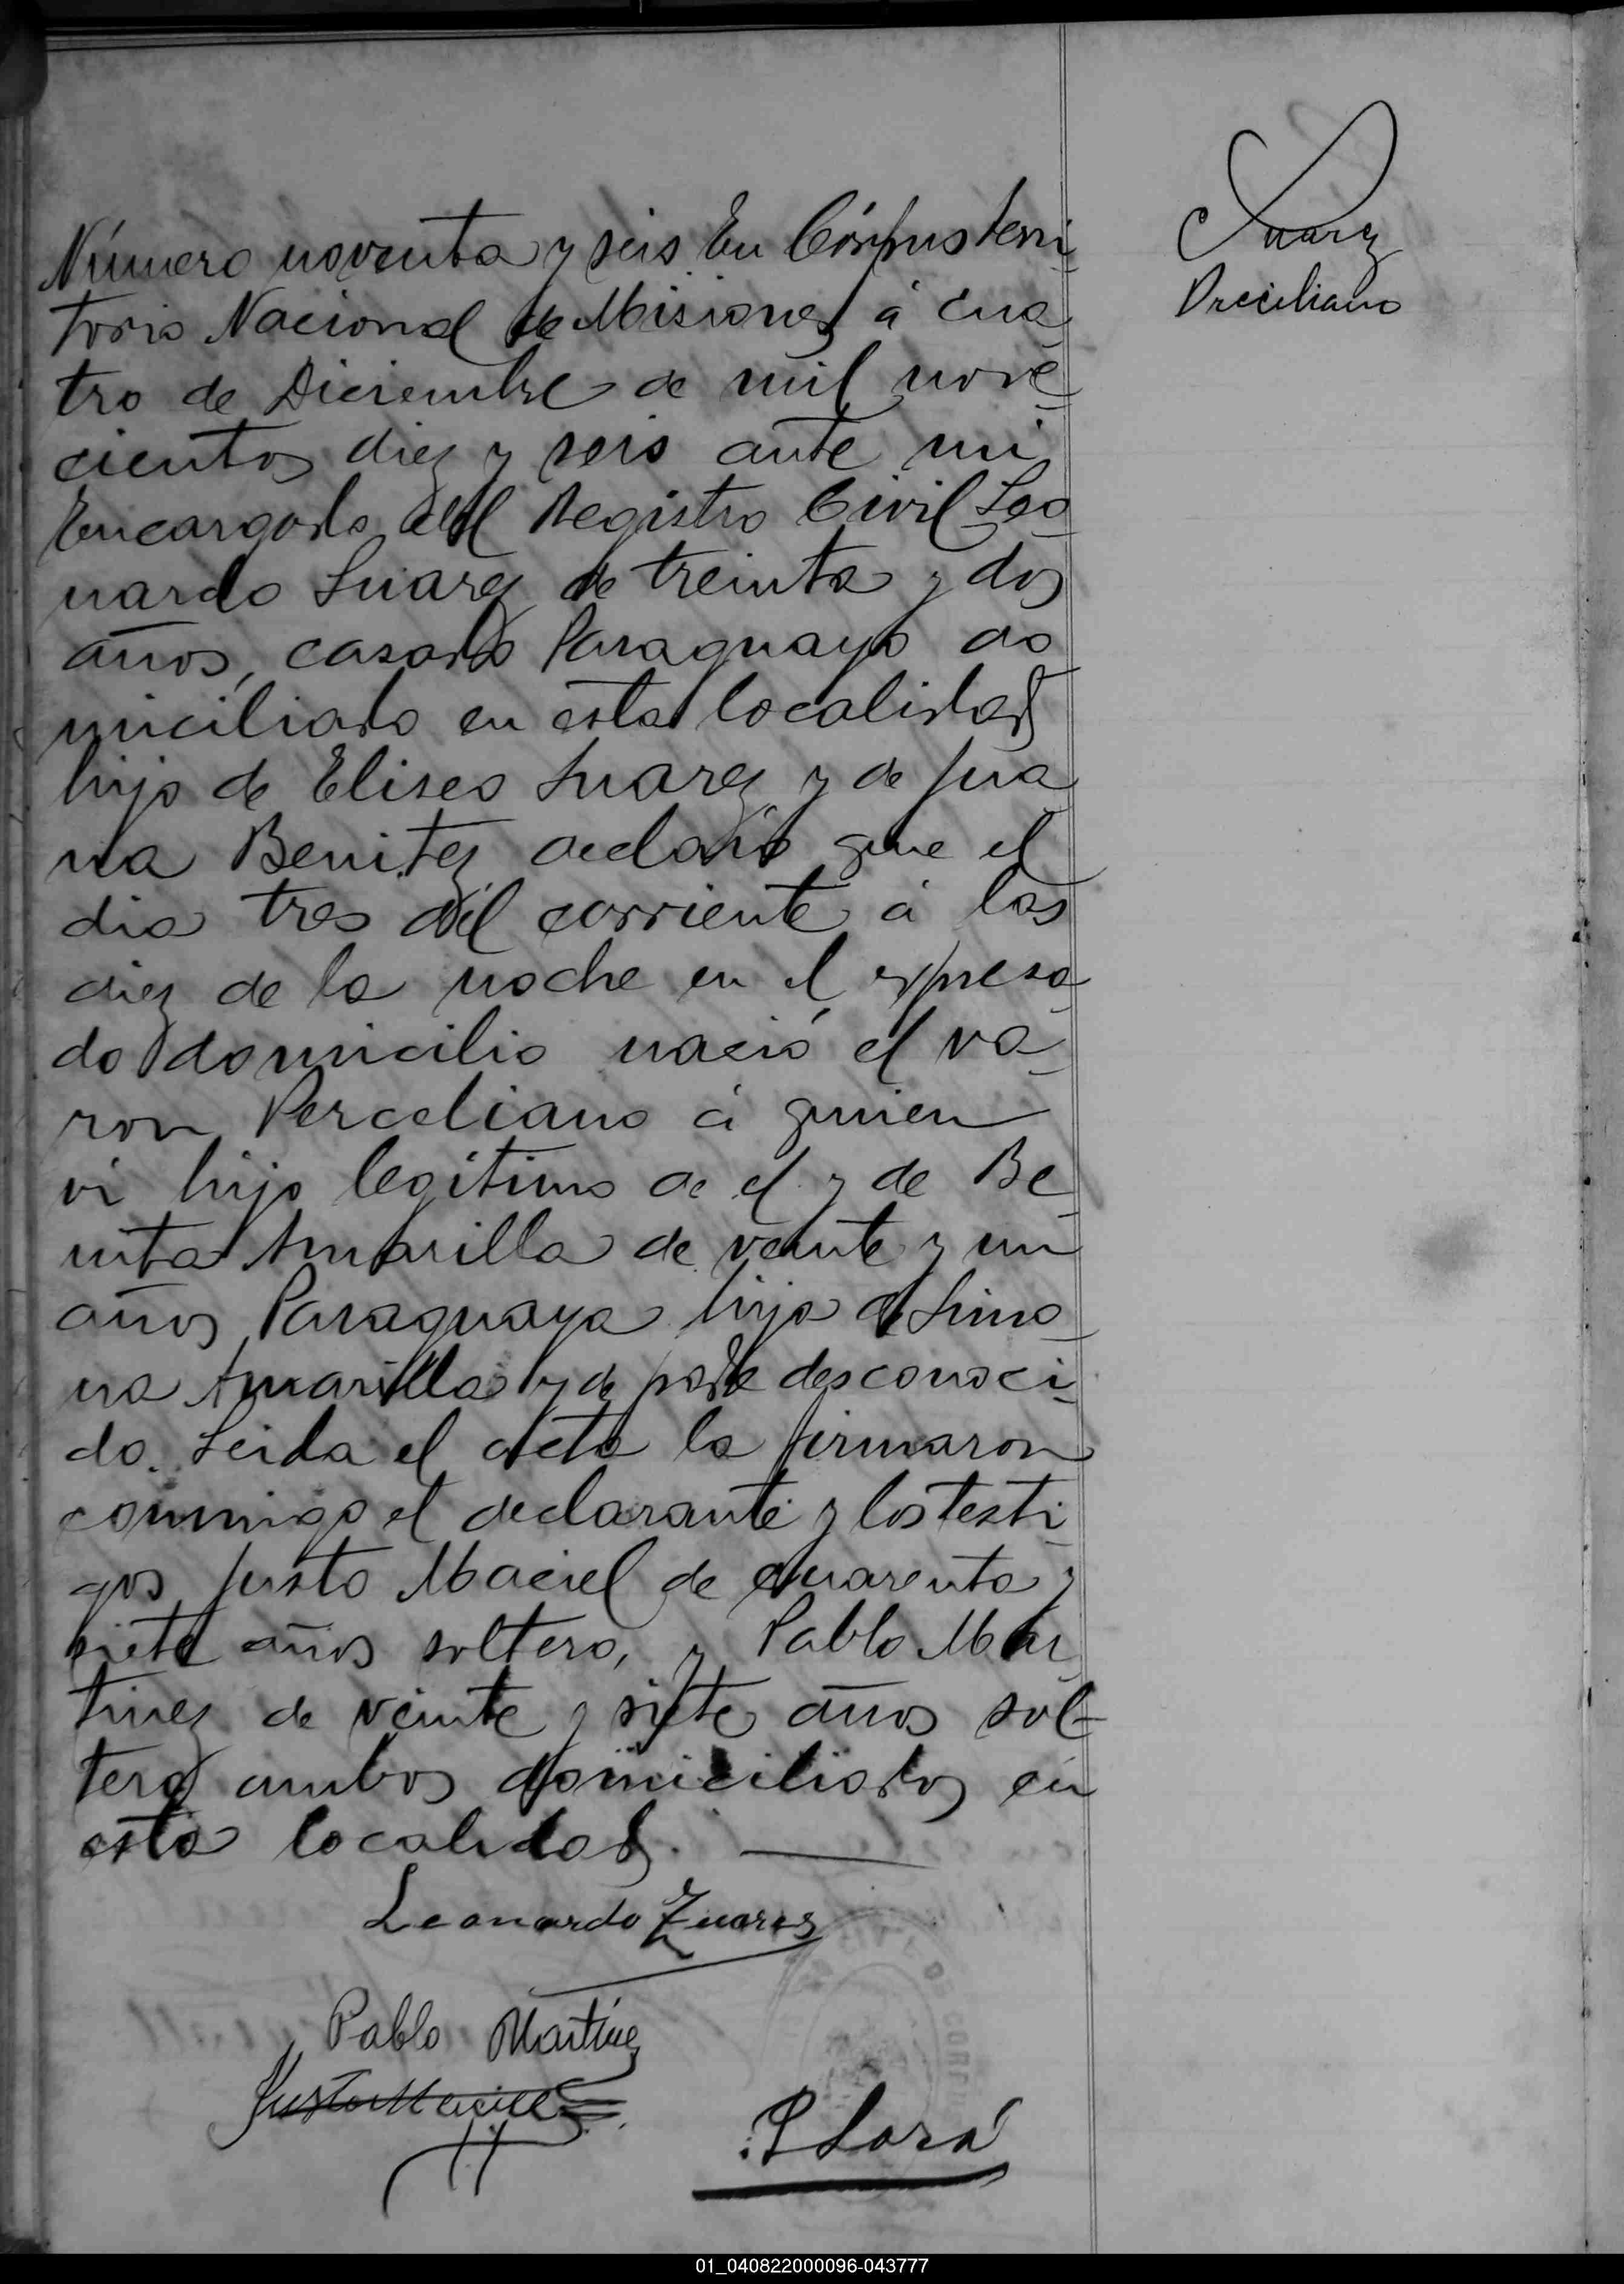 Número noventa y seis En Córpus terri-
torio Nacional de Misiones á cua-
tro de Diciembre de mil nove-
cientos diez y seis ante mi
Encargado del Registro Civil Leo-
nardo Suarez de treinta y dos
años, casado Paraguayo do
miciliado en esta localidad
hijo de Eliseo Suarez y de Jua-
na Benitez declaró que el
dia tres del corriente á las
diez de la noche en el espresa-
do domicilio nació el va-
ron Perceliano á quien
vi hijo legítimo de el y de Be-
nita Amarilla de veinte y un
años Paraguaya hija de Simo-
na Amarilla y de padre desconoci-
do. Leida el acta la firmaron
conmigo el declarante y los testi-
gos Justo Maciel de cuarenta y
siete años soltero, y Pablo Mar-
tinez de veinte y siete años sol-
tero ambos domiciliados en
esta localidad.
Leonardo Zuarez
Pablo Martinez
Justo Maciel
P Lora
Suarez
Preciliano
01_040822000096-043777